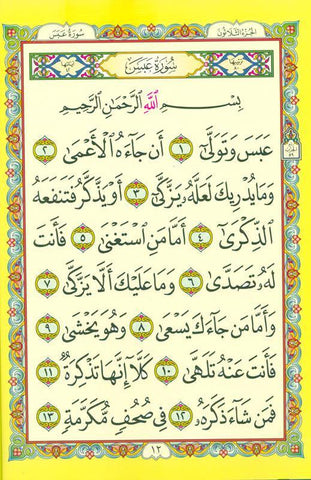 الجزء الثلاثون سورة عبس
سُورَةُ عَبَسَ
بِسْمِ اللَّهِ الرَّحْمَٰنِ الرَّحِيمِ
عَبَسَ وَتَوَلَّىٰٓ ١ أَن جَآءَهُ الْأَعْمَىٰ ٢
وَمَا يُدْرِيكَ لَعَلَّهُۥ يَزَّكَّىٰٓ ٣ أَوْ يَذَّكَّرُ فَتَنفَعَهُ
الذِّكْرَىٰٓ ٤ أَمَّا مَنِ اسْتَغْنَىٰ ٥ فَأَنتَ
لَهُۥ تَصَدَّىٰ ٦ وَمَا عَلَيْكَ أَلَّا يَزَّكَّىٰ ٧
وَأَمَّا مَن جَآءَكَ يَسْعَىٰ ٨ وَهُوَ يَخْشَىٰ ٩
فَأَنتَ عَنْهُ تَلَهَّىٰ ١٠ كَلَّآ إِنَّهَا تَذْكِرَةٌ ١١
فَمَن شَآءَ ذَكَرَهُۥ ١٢ فِي صُحُفٍ مُّكَرَّمَةٍ ١٣
١٢